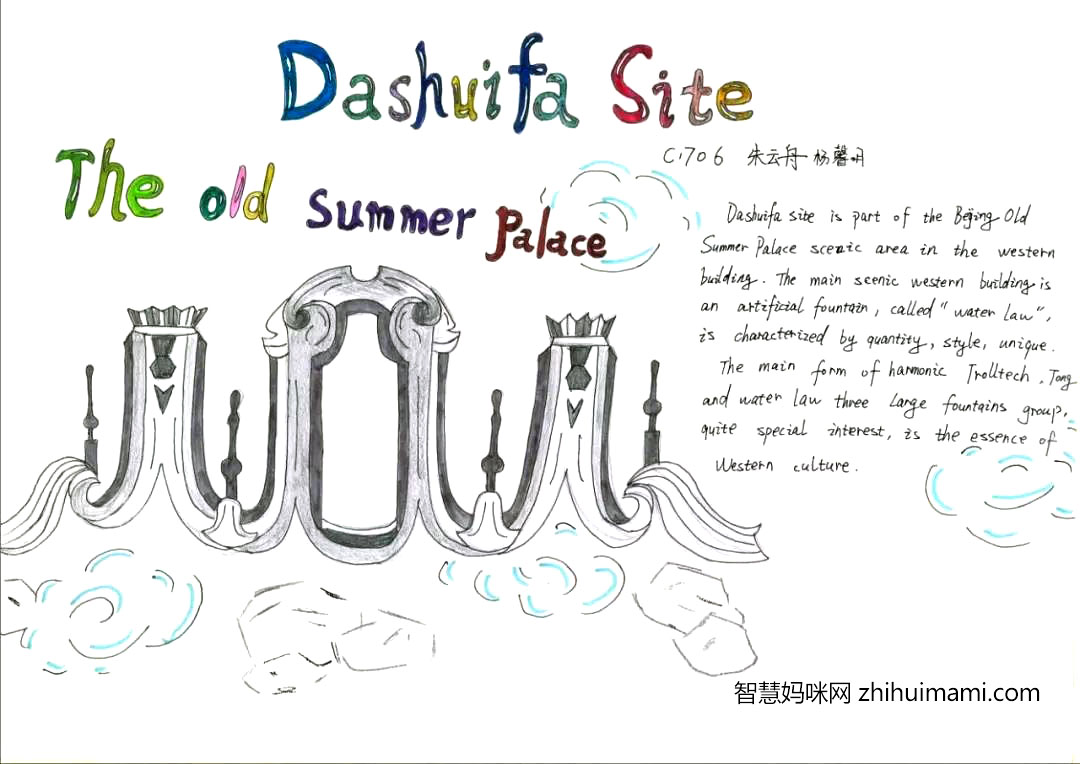 Dashuifa Site
The old summer Palace
C1706 朱云舟 杨馨月
Dashuifa site is part of the Beijing Old
Summer Palace scenic area in the western
building. The main scenic western building is
an artificial fountain, called "water law",
is characterized by quantity, style, unique.
The main form of harmonic Trolltech, Tong
and water law three large fountains group,
quite special interest, is the essence of
Western culture.
智慧妈咪网 zhihuimami.com